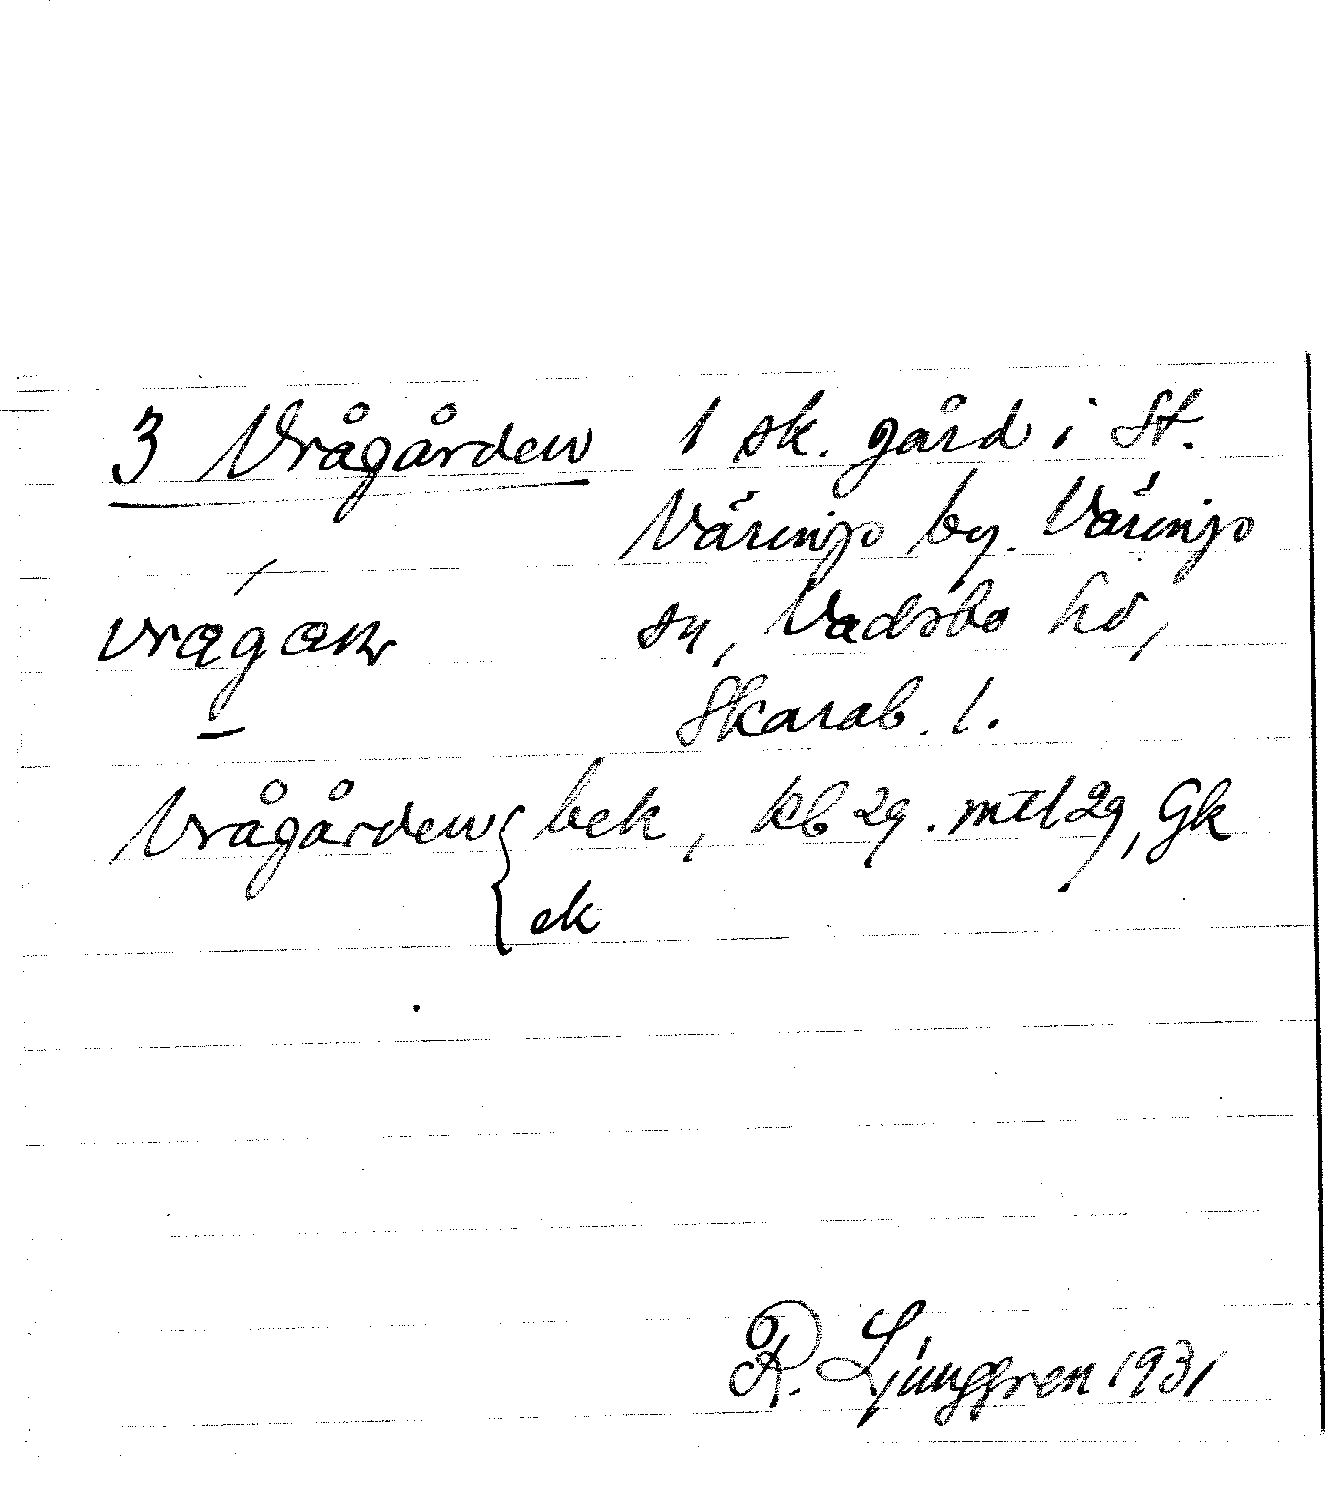 3 Vrågården 1 sk. gård i St.
Värings by. Värings
sn, Vadsbo hd,
Skarab. l.
Vrågården { bek, kb 29. mtl 29, Gk
ek
R. Ljunggren 1931